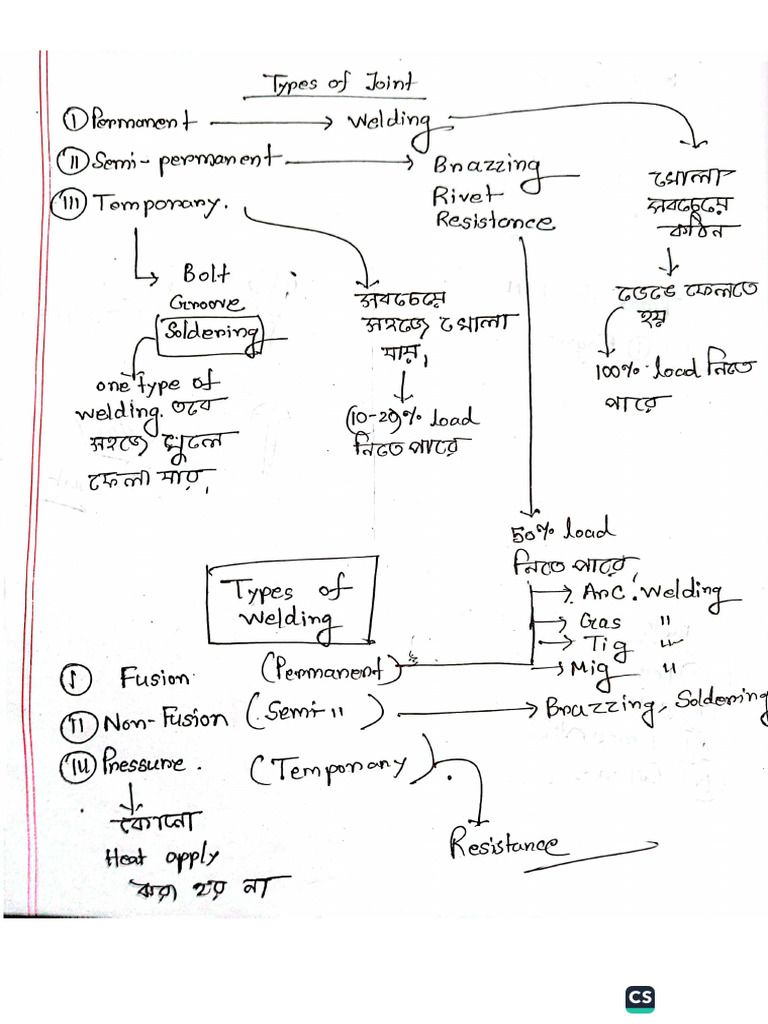 Types of Joint
I Permanent → Welding
II Semi-permanent → Brazzing
Rivet
Resistance
III Temporary.
খোলা
সবচেয়ে
কঠিন
ভেঙে ফেলতে
হয়
100% load নিতে
পারে
Bolt
Groove
Soldering
one type of
welding. তবে
সহজে খুলে
ফেলা যায়।
সবচেয়ে
সহজে খোলা
যায়।
(10-20)% load
নিতে পারে
50% load
নিতে পারে।
Types of
Welding
Arc Welding
Gas "
Tig "
Mig "
I Fusion (Permanent)
II Non-Fusion (Semi- " ) → Brazzing, Soldering
III Pressure. (Temporary).
কোনো
Heat apply
করা হয় না
Resistance
CS